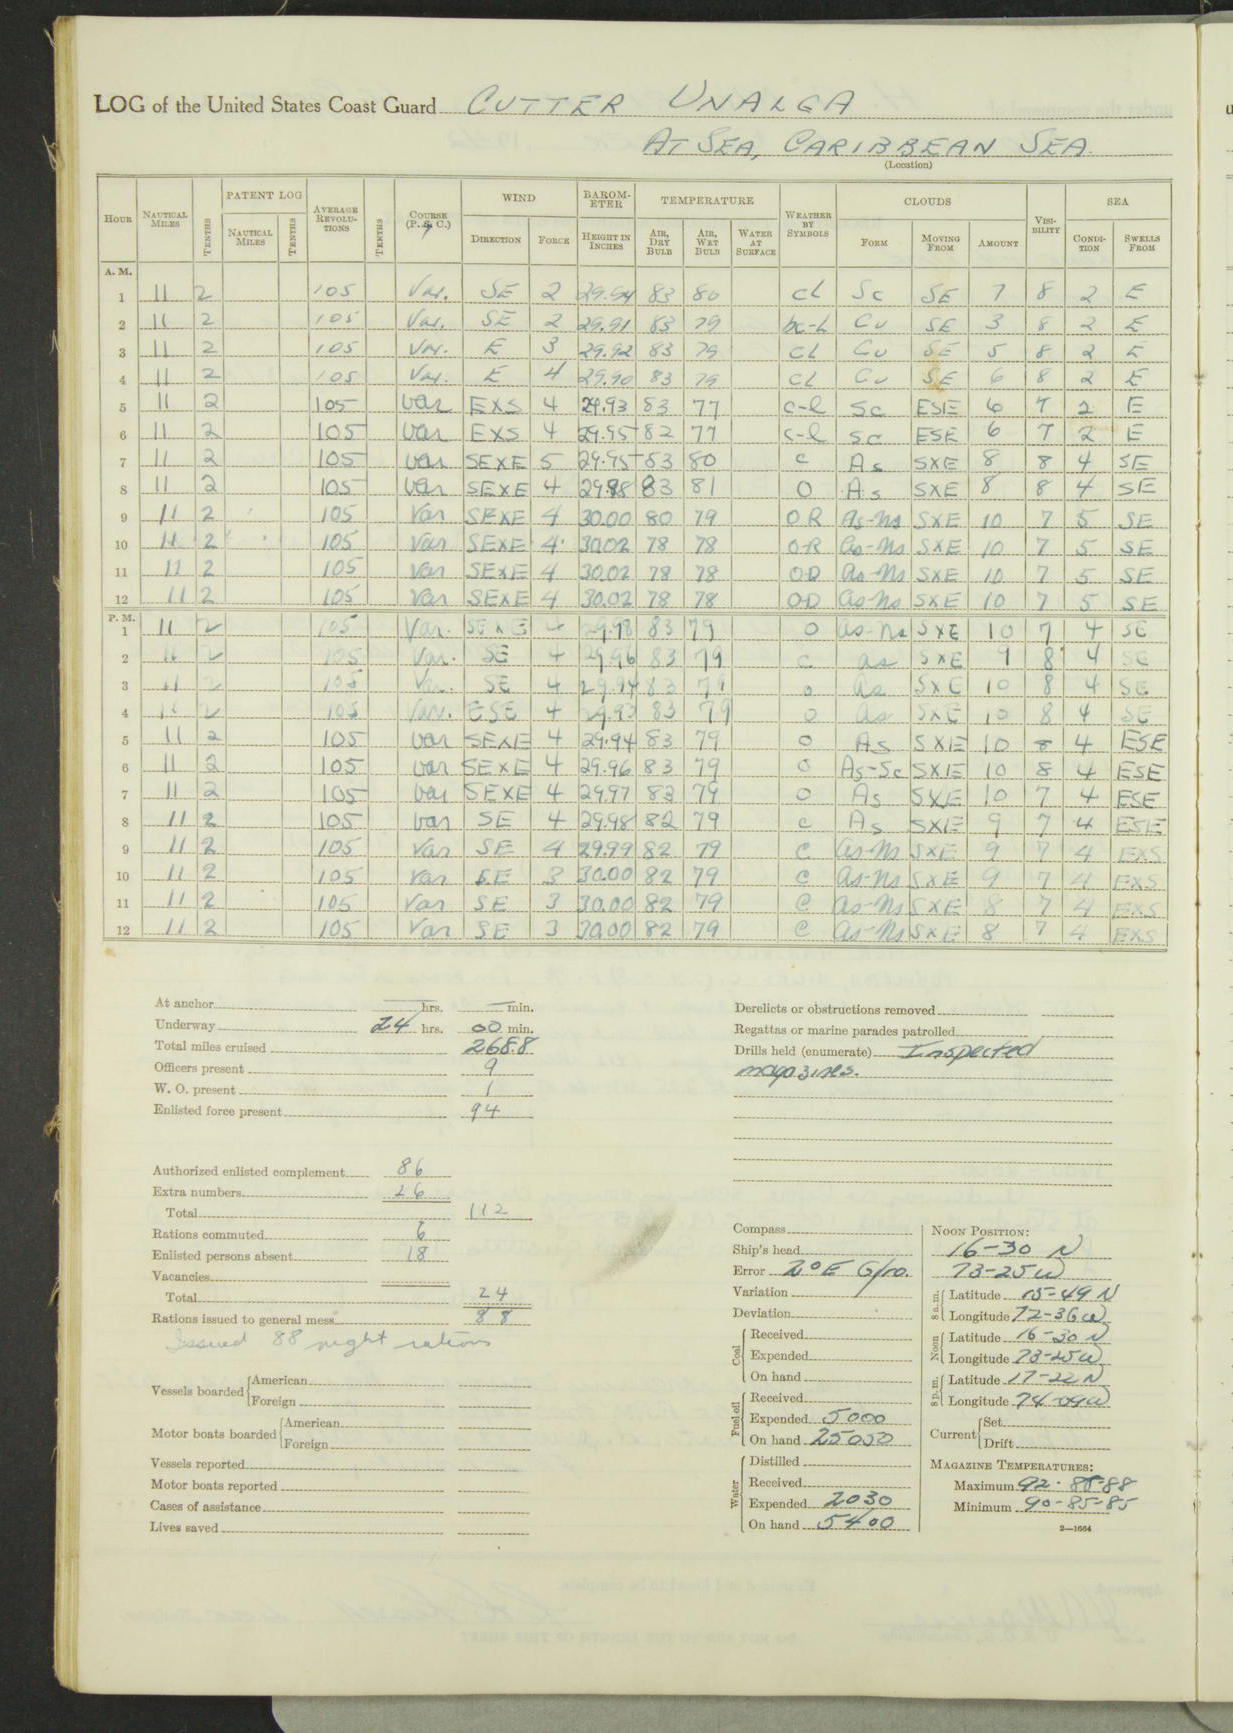 LOG of the United States Coast Guard CUTTER UNALGA
AT SEA, CARIBBEAN SEA
(Location)
HOUR NAUTICAL MILES TENTHS PATENT LOG NAUTICAL MILES TENTHS AVERAGE REVOLUTIONS TENTHS COURSE (P. S. C.) WIND DIRECTION FORCE BAROMETER HEIGHT IN INCHES TEMPERATURE AIR, DRY BULB AIR, WET BULB WATER AT SURFACE WEATHER BY SYMBOLS CLOUDS FORM MOVING FROM AMOUNT VISIBILITY SEA CONDITION SWELLS FROM
A. M.
1 11 2 105 Var. SE 2 29.94 83 80 cl Sc SE 7 8 2 E
2 11 2 105 Var. SE 2 29.91 83 79 bc-l Cu SE 3 8 2 E
3 11 2 105 Var. E 3 29.92 83 79 cl Cu SE 5 8 2 E
4 11 2 105 Var. E 4 29.90 83 79 cl Cu SE 6 8 2 E
5 11 2 105 var EXS 4 29.93 83 77 c-l Sc ESE 6 7 2 E
6 11 2 105 var EXS 4 29.95 82 77 c-l Sc ESE 6 7 2 E
7 11 2 105 var SEXE 5 29.95 83 80 c As SXE 8 8 4 SE
8 11 2 105 var SEXE 4 29.98 83 81 O As SXE 8 8 4 SE
9 11 2 105 Var SEXE 4 30.00 80 79 OR As-Ns SXE 10 7 5 SE
10 11 2 105 Var SEXE 4 30.02 78 78 O-R As-Ns SXE 10 7 5 SE
11 11 2 105 Var SEXE 4 30.02 78 78 O-D As-Ns SXE 10 7 5 SE
12 11 2 105 Var SEXE 4 30.02 78 78 O-D As-Ns SXE 10 7 5 SE
P. M.
1 11 2 105 Var. SEXE 4 29.98 83 79 O As-Ns SXE 10 7 4 SE
2 11 2 105 Var. SE 4 29.96 83 79 c As SXE 9 8 4 SE
3 11 2 105 Var. SE 4 29.94 83 79 o As SXE 10 8 4 SE
4 11 2 105 Var. ESE 4 29.93 83 79 o As SXE 10 8 4 SE
5 11 2 105 var SEXE 4 29.94 83 79 O As SXE 10 8 4 ESE
6 11 2 105 var SEXE 4 29.96 83 79 O As-Sc SXE 10 8 4 ESE
7 11 2 105 var SEXE 4 29.97 83 79 O As SXE 10 7 4 ESE
8 11 2 105 var SE 4 29.98 82 79 c As SXE 9 7 4 ESE
9 11 2 105 Var SE 4 29.99 82 79 C As-Ns SXE 9 7 4 EXS
10 11 2 105 Var SE 3 30.00 82 79 C As-Ns SXE 9 7 4 EXS
11 11 2 105 Var SE 3 30.00 82 79 C As-Ns SXE 8 7 4 EXS
12 11 2 105 Var SE 3 30.00 82 79 C As-Ns SXE 8 7 4 EXS
At anchor — hrs. — min.
Underway 24 hrs. 00 min.
Total miles cruised 268.8
Officers present 9
W. O. present 1
Enlisted force present 94
Authorized enlisted complement 86
Extra numbers 26
Total 112
Rations commuted 6
Enlisted persons absent 18
Vacancies
Total 24
Rations issued to general mess 88
Issued 88 night rations
Vessels boarded American
Foreign
Motor boats boarded American
Foreign
Vessels reported
Motor boats reported
Cases of assistance
Lives saved
Derelicts or obstructions removed
Regattas or marine parades patrolled
Drills held (enumerate) Inspected
magazines.
Compass
Ship's head
Error 2° E Gyro.
Variation
Deviation
Coal Received
Expended
On hand
Fuel oil Received
Expended 5000
On hand 25050
Water Distilled
Received
Expended 2030
On hand 5400
NOON POSITION:
16-30 N
73-25 W
8 a.m. Latitude 15-49 N
Longitude 72-36 W
Noon Latitude 16-30 N
Longitude 73-25 W
8 p.m. Latitude 17-22 N
Longitude 74-09 W
Current Set
Drift
MAGAZINE TEMPERATURES:
Maximum 92-88-88
Minimum 90-85-85
2—1664